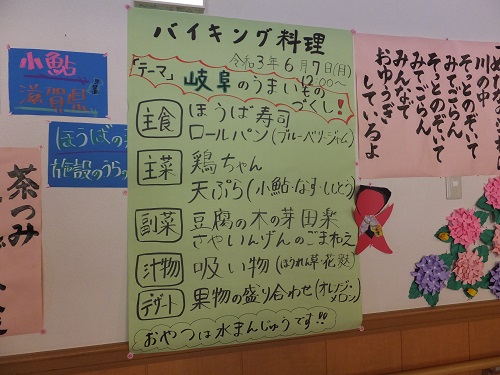 バイキング料理
令和3年6月7日(月)
12:00~
「テーマ」岐阜のうまいもの
づくし!
主食 ほうば寿司
ロールパン(ブルーベリージャム)
主菜 鶏ちゃん
天ぷら(小鮎・なす・ししとう)
副菜 豆腐の木の芽田楽
さやいんげんのごまあえ
汁物 吸い物(ほうれん草・花麩)
デザート 果物の盛り合わせ(オレンジ・
メロン)
おやつは水まんじゅうです!!
小鮎
滋賀県
ほうばの
施設のうらの
茶つみ
めだかの
川の中
そっとのぞいて
みてごらん
そっとのぞいて
みてごらん
みんなで
おゆうぎ
しているよ